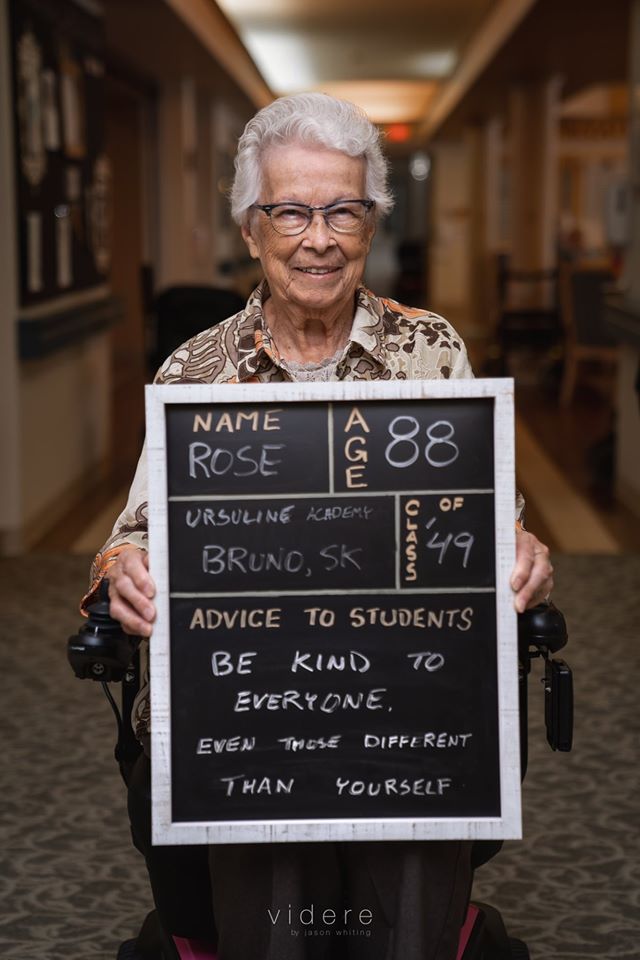 NAME
ROSE
AGE
88
URSULINE ACADEMY
BRUNO, SK
CLASS OF
'49
ADVICE TO STUDENTS
BE KIND TO
EVERYONE.
EVEN THOSE DIFFERENT
THAN YOURSELF
videre
by jason whiting